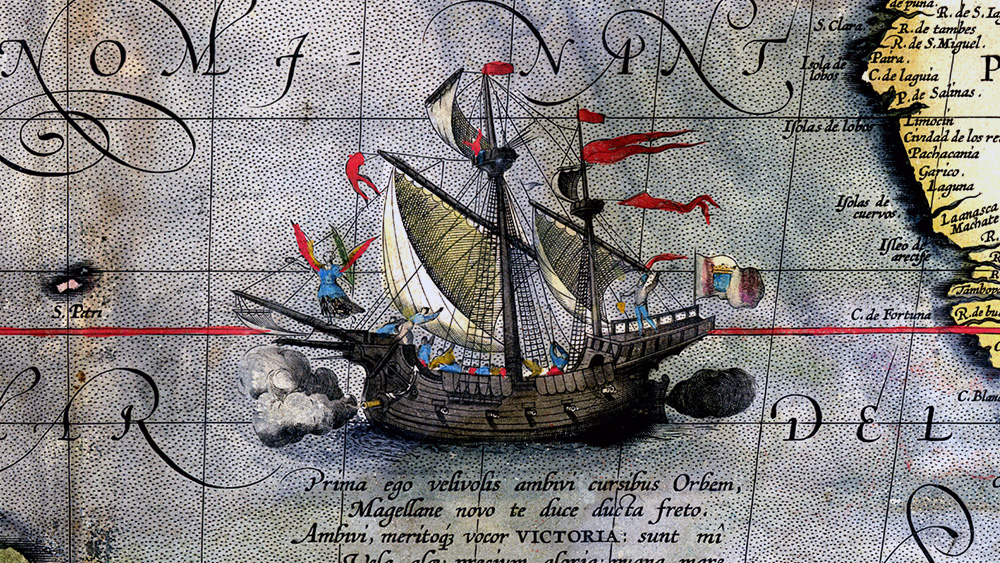 NOMI-
NANT,
MAR
DEL
de puna.
S. Clara
R. de tambes
R. de S. Miguel.
Paira.
Isola de
lobos
C. de laguia
P. de Salinas.
Limocin
Islas de lobos
Cividad de los re
Pachacania
Garico.
Laguna
Islas de
cuervos.
Machate
Isleo de
arecife
R.
Tambop
C. de Fortuna
R. de bu
C. Blan
P
S. Petri
Prima ego velivolis ambivi cursibus Orbem,
Magellane novo te duce ducta freto.
Ambivi, meritoqȝ vocor VICTORIA: sunt mî